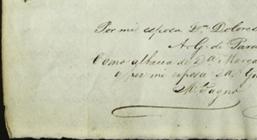 Por mi esposa Da. Dolores
A. G. de Para
Como albacea de Da. Merce
o por mi esposa sa. Gu
M. Tagno